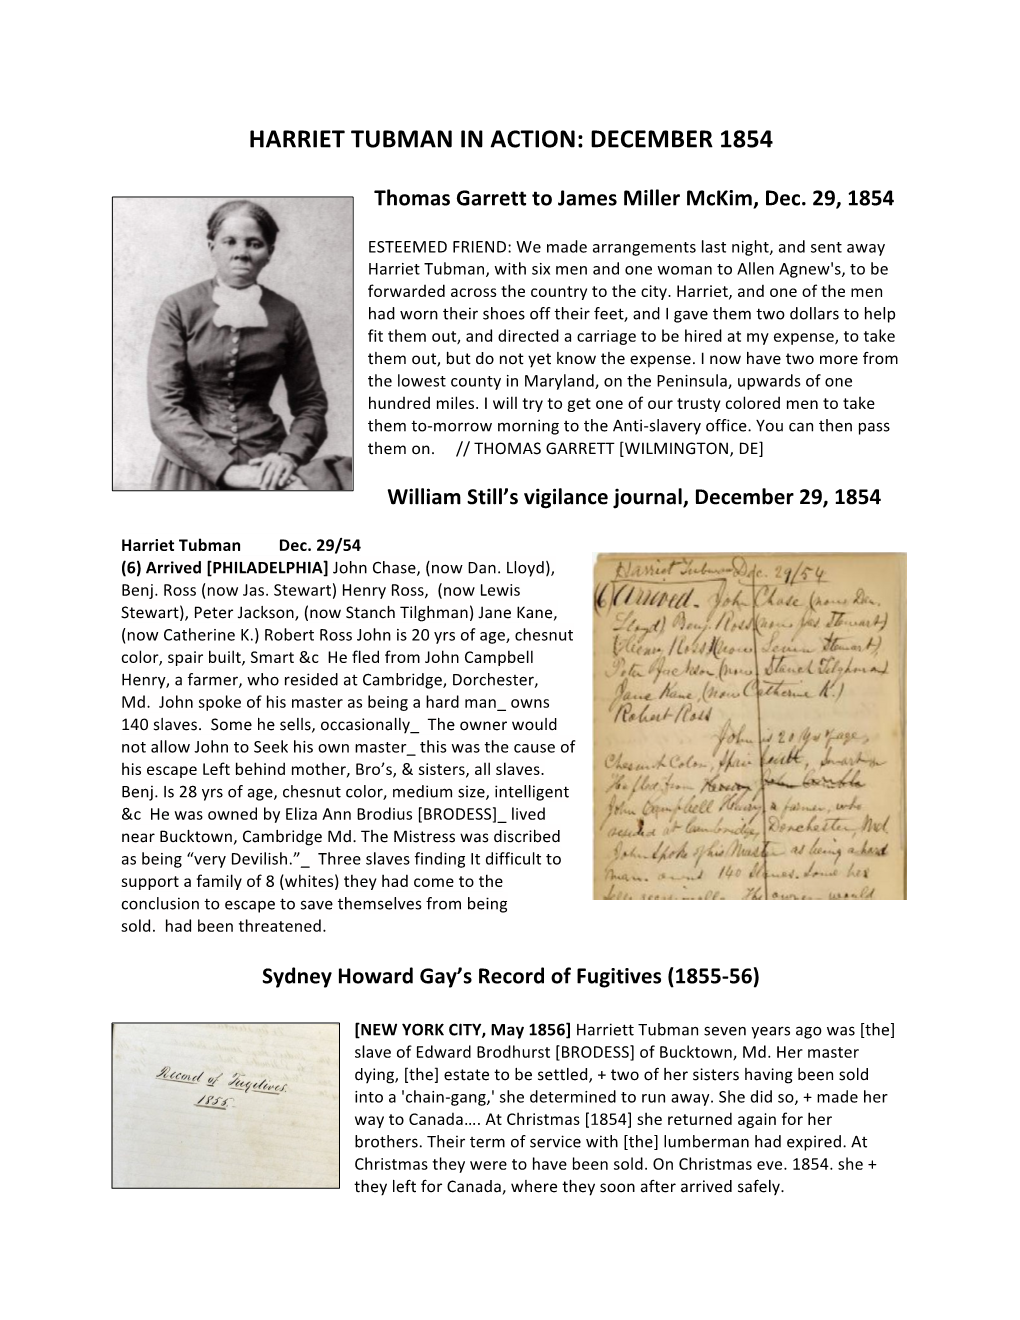 HARRIET TUBMAN IN ACTION: DECEMBER 1854
Thomas Garrett to James Miller McKim, Dec. 29, 1854
ESTEEMED FRIEND: We made arrangements last night, and sent away
Harriet Tubman, with six men and one woman to Allen Agnew's, to be
forwarded across the country to the city. Harriet, and one of the men
had worn their shoes off their feet, and I gave them two dollars to help
fit them out, and directed a carriage to be hired at my expense, to take
them out, but do not yet know the expense. I now have two more from
the lowest county in Maryland, on the Peninsula, upwards of one
hundred miles. I will try to get one of our trusty colored men to take
them to-morrow morning to the Anti-slavery office. You can then pass
them on. // THOMAS GARRETT [WILMINGTON, DE]
William Still’s vigilance journal, December 29, 1854
Harriet Tubman Dec. 29/54
(6) Arrived [PHILADELPHIA] John Chase, (now Dan. Lloyd),
Benj. Ross (now Jas. Stewart) Henry Ross, (now Lewis
Stewart), Peter Jackson, (now Stanch Tilghman) Jane Kane,
(now Catherine K.) Robert Ross John is 20 yrs of age, chesnut
color, spair built, Smart &c He fled from John Campbell
Henry, a farmer, who resided at Cambridge, Dorchester,
Md. John spoke of his master as being a hard man_ owns
140 slaves. Some he sells, occasionally_ The owner would
not allow John to Seek his own master_ this was the cause of
his escape Left behind mother, Bro’s, & sisters, all slaves.
Benj. Is 28 yrs of age, chesnut color, medium size, intelligent
&c He was owned by Eliza Ann Brodius [BRODESS]_ lived
near Bucktown, Cambridge Md. The Mistress was discribed
as being “very Devilish.”_ Three slaves finding It difficult to
support a family of 8 (whites) they had come to the
conclusion to escape to save themselves from being
sold. had been threatened.
Harriet Tubman Dec. 29/54
(6) Arrived. John Chase (now Dan.
Lloyd) Benj. Ross (now Jas Stewart)
Henry Ross (now Stewart),
Peter Jackson, (now Stanch Tilghman)
Jane Kane, (now Catherine K.)
Robert Ross
John is 20 Yrs of age,
Chesnut Color, Spair built, Smart &c
He fled from
John Campbell Henry a farmer, who
resided at Cambridge, Dorchester, Md.
John Spoke of his Master as being a hard
man. owns 140 Slaves. Some he
The owner would
Sydney Howard Gay’s Record of Fugitives (1855-56)
Record of Fugitives.
1855.
[NEW YORK CITY, May 1856] Harriett Tubman seven years ago was [the]
slave of Edward Brodhurst [BRODESS] of Bucktown, Md. Her master
dying, [the] estate to be settled, + two of her sisters having been sold
into a 'chain-gang,' she determined to run away. She did so, + made her
way to Canada…. At Christmas [1854] she returned again for her
brothers. Their term of service with [the] lumberman had expired. At
Christmas they were to have been sold. On Christmas eve. 1854. she +
they left for Canada, where they soon after arrived safely.